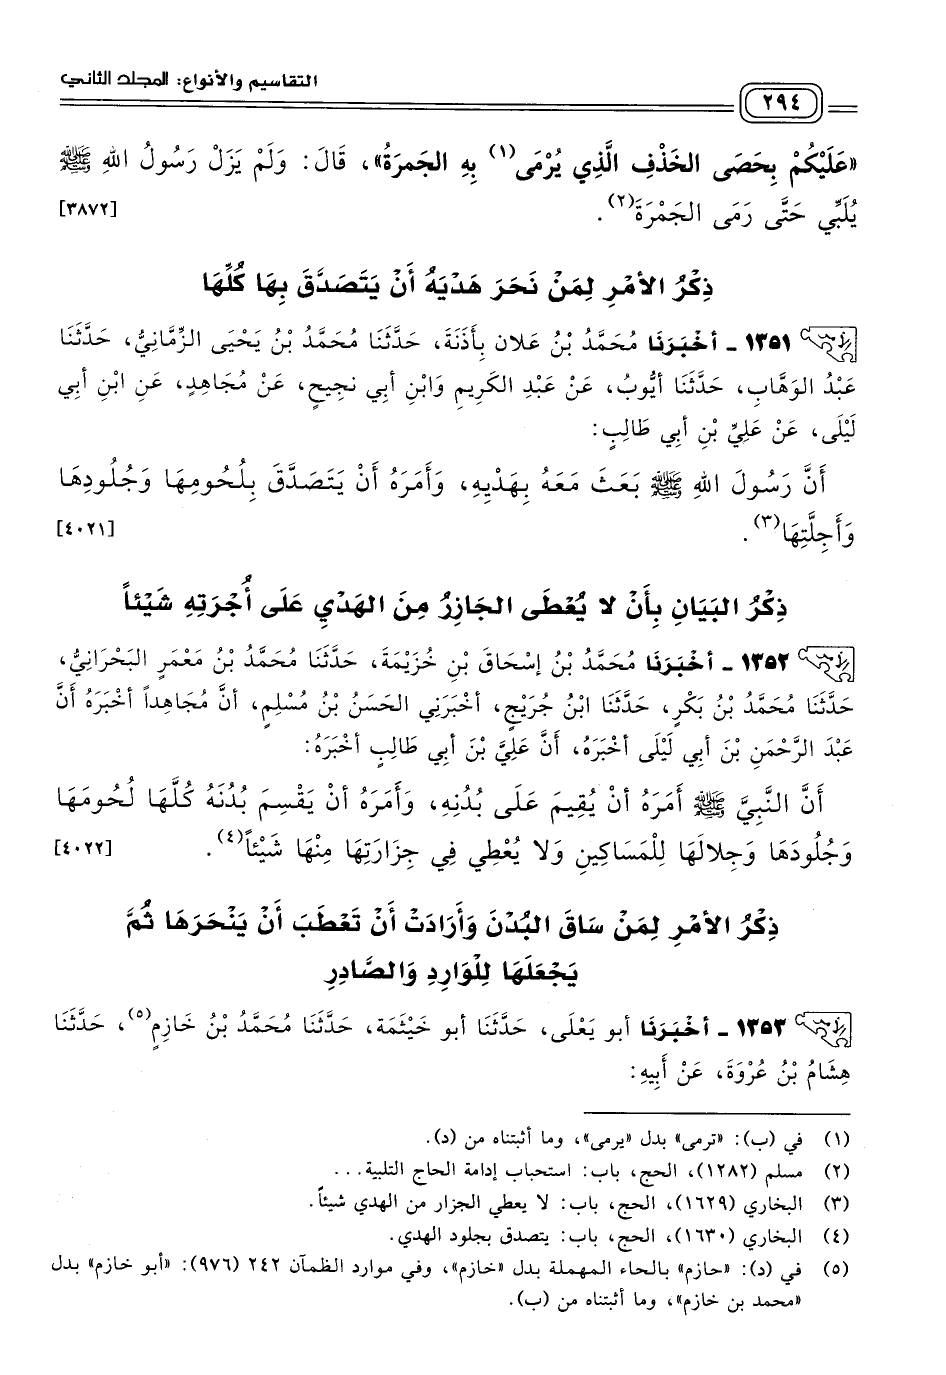 التقاسيم والأنواع: المجلد الثاني
٢٩٤
«عَلَيْكُمْ بِحَصَى الخَذْفِ الَّذِي يُرْمَى(١) بِهِ الجَمرَةُ»، قَالَ: وَلَمْ يَزَلْ رَسُولُ اللهِ ﷺ
يُلَبِّي حَتَّى رَمَى الجَمْرَةَ(٢). [٣٨٧٢]
ذِكْرُ الأمْرِ لِمَنْ نَحَرَ هَدْيَهُ أَنْ يَتَصَدَّقَ بِهَا كُلِّهَا
١٣٥١ ـ أخْبَرَنَا مُحَمَّدُ بْنُ عَلان بِأَذَنَة، حَدَّثَنَا مُحَمَّدُ بْنُ يَحْيَى الزِّمَّانِيُّ، حَدَّثَنَا
عَبْدُ الوَهَّابِ، حَدَّثَنَا أيُّوبُ، عَنْ عَبْدِ الكَرِيمِ وَابْنِ أبي نجِيحٍ، عَنْ مُجَاهِدٍ، عَنِ ابْنِ أبِي
لَيْلَى، عَنْ عَلِيِّ بْنِ أبِي طَالِبٍ:
أَنَّ رَسُولَ اللهِ ﷺ بَعَثَ مَعَهُ بِهَدْيِهِ، وَأَمَرَهُ أَنْ يَتَصَدَّقَ بِلُحُومِهَا وَجُلُودِهَا
وَأَجِلَّتِهَا(٣). [٤٠٢١]
ذِكْرُ البَيَانِ بِأَنْ لا يُعْطَى الجَازِرُ مِنَ الهَدْيِ عَلَى أُجْرَتِهِ شَيْئاً
١٣٥٢ ـ أخْبَرَنَا مُحَمَّدُ بْنُ إسْحَاقَ بْنِ خُزَيْمَة، حَدَّثَنَا مُحَمَّدُ بْنُ مَعْمَرٍ البَحْرَانِيُّ،
حَدَّثَنَا مُحَمَّدُ بْنُ بَكْرٍ، حَدَّثَنَا ابْنُ جُرَيْجٍ، أخْبَرَنِي الحَسَنُ بْنُ مُسْلِمٍ، أنَّ مُجَاهِداً أخْبَرَهُ أنَّ
عَبْدَ الرَّحْمَنِ بْنَ أبِي لَيْلَى أخْبَرَهُ، أَنَّ عَلِيَّ بْنَ أبِي طَالِبٍ أخْبَرَهُ:
أَنَّ النَّبِيَّ ﷺ أَمَرَهُ أنْ يُقِيمَ عَلَى بُدْنِهِ، وَأَمَرَهُ أنْ يَقْسِمَ بُدْنَهُ كُلَّهَا لُحُومَهَا
وَجُلُودَهَا وَجِلالَهَا لِلْمَسَاكِينِ وَلا يُعْطِي فِي جِزَارَتِهَا مِنْهَا شَيْئاً(٤). [٤٠٢٢]
ذِكْرُ الأمْرِ لِمَنْ سَاقَ البُدْنَ وَأَرَادَتْ أَنْ تَعْطَبَ أَنْ يَنْحَرَهَا ثُمَّ
يَجْعَلَهَا لِلْوَارِدِ وَالصَّادِرِ
١٣٥٣ ـ أخْبَرَنَا أبو يَعْلَى، حَدَّثَنَا أبو خَيْثَمَة، حَدَّثَنَا مُحَمَّدُ بْنُ خَازِمٍ(٥)، حَدَّثَنَا
هِشَامُ بْنُ عُرْوَةَ، عَنْ أَبِيهِ:
(١) في (ب): «ترمى» بدل «يرمى»، وما أثبتناه من (د).
(٢) مسلم (١٢٨٢)، الحج، باب: استحباب إدامة الحاج التلبية...
(٣) البخاري (١٦٢٩)، الحج، باب: لا يعطي الجزار من الهدي شيئاً.
(٤) البخاري (١٦٣٠)، الحج، باب: يتصدق بجلود الهدي.
(٥) في (د): «حازم» بالحاء المهملة بدل «خازم»، وفي موارد الظمآن ٢٤٢ (٩٧٦): «أبو خازم» بدل
«محمد بن خازم»، وما أثبتناه من (ب).